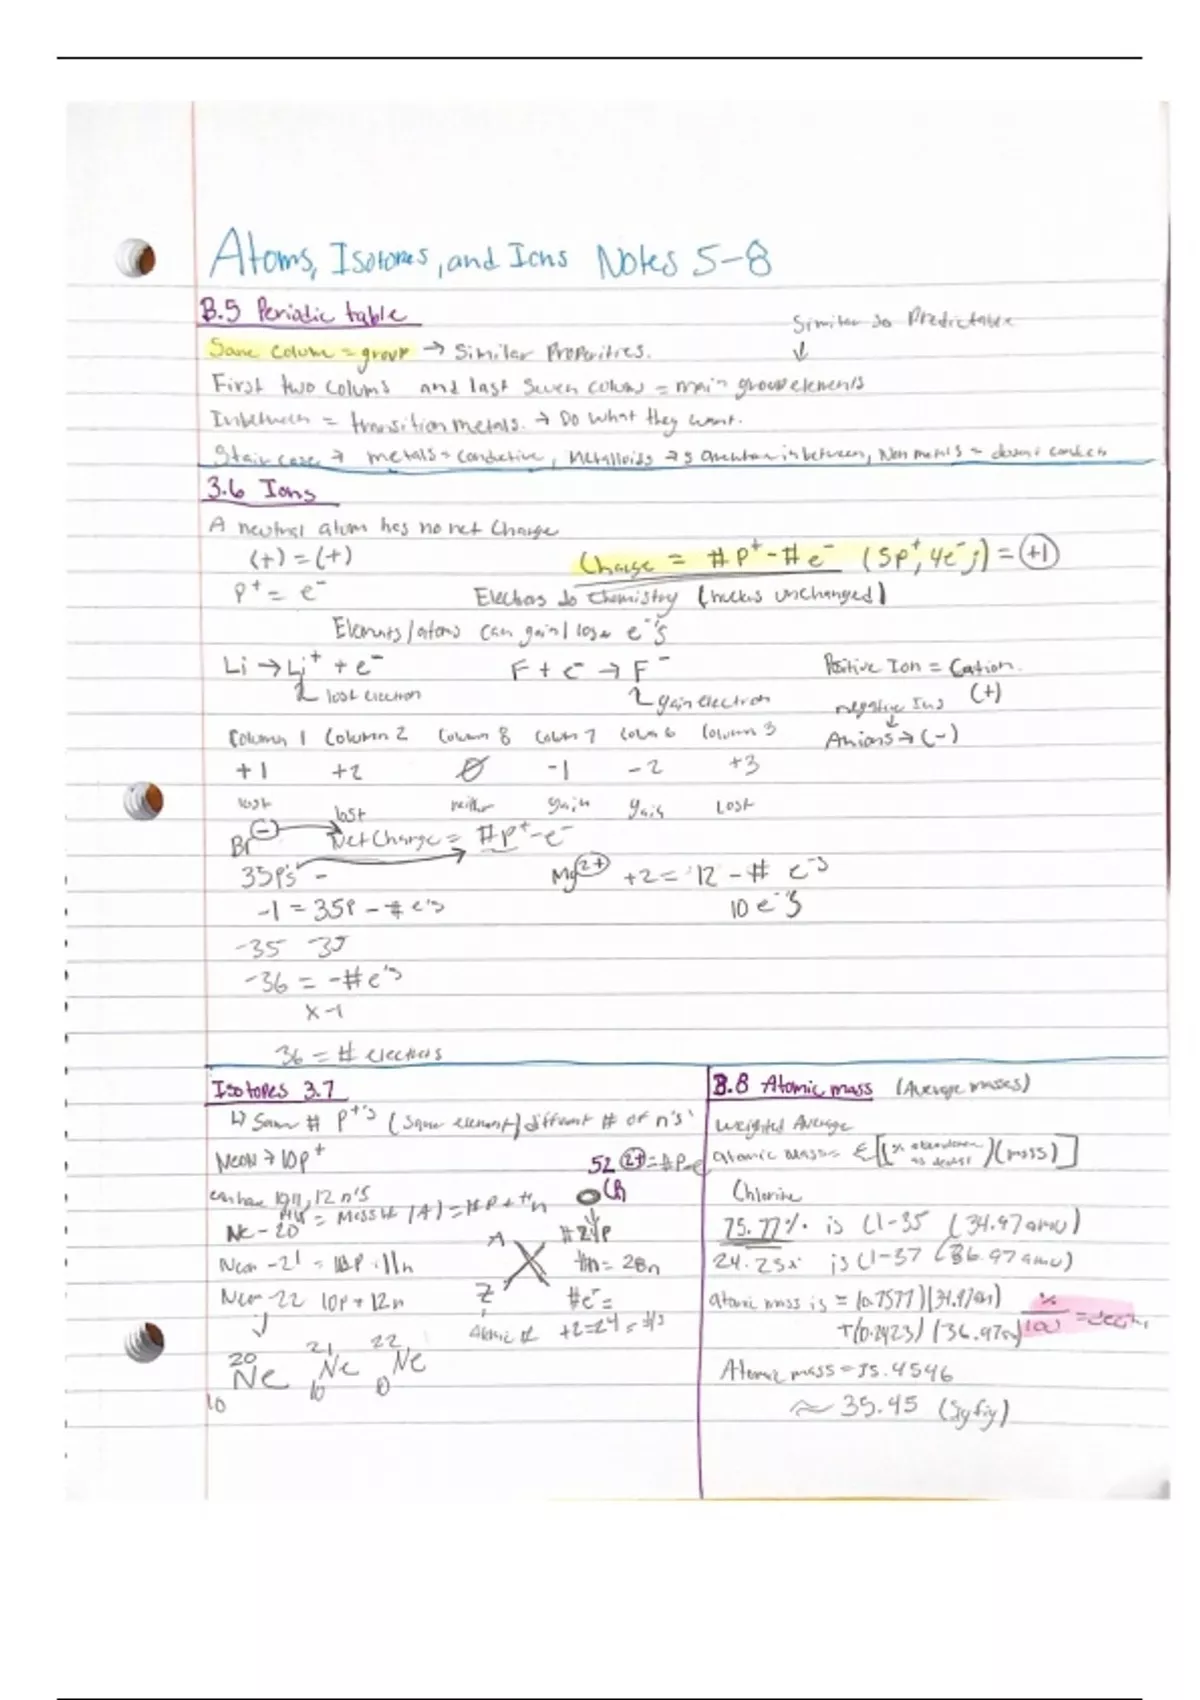 Atoms, Isotopes, and Ions Notes 5-8
3.5 Periodic table
Similar so Predictable
↓
Same colum = group → Similar Properities.
First two colums and last seven colums = main group elements
Inbetween = transition metals. → Do what they want.
Staircase → metals = conductive, Metalloids → inbetween, Non metals = conduct
3.6 Ions
A neutral atom has no net Charge
(+) = (+)
Charge = #p⁺ - #e⁻ (5p⁺, 4e⁻) = +1
p⁺ = e⁻
Electrons do chemistry (nucleus unchanged)
Elements/atoms can gain/lose e⁻'s
Li → Li⁺ + e⁻ F + e⁻ → F⁻ Positive Ion = Cation.
lost electron gain electron negative Ions (+)
Anions → (-)
Column 1 Column 2 Column 8 Column 7 Colum 6 Column 3
+1 +2 Ø -1 -2 +3
lost lost neither gain gain Lost
Br⁻ Net Charge = #p⁺-e⁻
35p's - Mg²⁺ +2 = 12 - # e⁻s
-1 = 35p - # e's 10 e⁻'s
-35 -35
-36 = -#e's
x -1
36 = # electrons
Isotopes 3.7
↳ Same # p⁺'s (same element) different # of n's
Neon → 10p⁺
52 2+ = #p-e
Cr
can have 10n, 12 n's
= Mass # (A) = #P + #n
Ne - 20
A #24p
Neon - 21 = 10p 11n #n = 28n
Neon - 22 10p + 12n Z #e⁻ =
Atomic # +2=24-#
20 Ne 10
21 Ne 10
22 Ne 10
3.8 Atomic mass (Average masses)
Weighted Average
atomic mass = Σ[(% abundance as decimal)(mass)]
Chlorine
75.77% is Cl-35 (34.97amu)
24.23% is Cl-37 (36.97amu)
atomic mass is = (0.7577)(34.97am)
+(0.2423)(36.97am)
%/100 = decim
Atomic mass = 35.4546
≈ 35.45 (Sgfig)